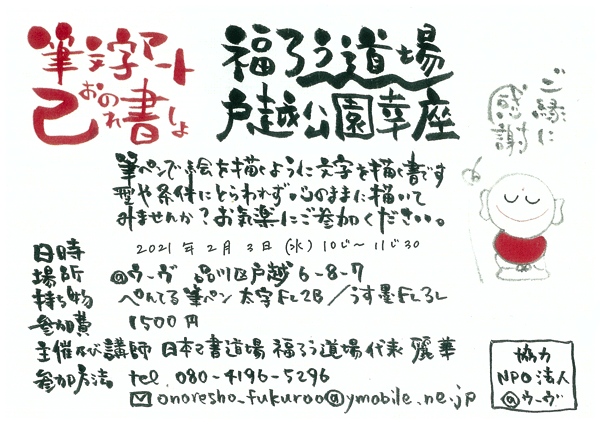 筆文字アート
己書
おのれしょ
福ろう道場
戸越公園幸座
ご縁に
感謝
筆ペンで絵を描くように文字を描く書です
型や条件にとらわれず心のままに描いて
みませんか？お気楽にご参加ください。
日時 2021年2月3日(水)10じ～11じ30
場所 @ウーヴ 品川区戸越6-8-7
持ち物 ぺんてる筆ペン 太字FL2B／うす墨FL3L
参加費 1500円
主催及び講師 日本己書道場 福ろう道場代表 麗華
参加方法 tel. 080-4196-5296
onoresho_fukuroo@ymobile.ne.jp
協力
NPO法人
@ウーヴ